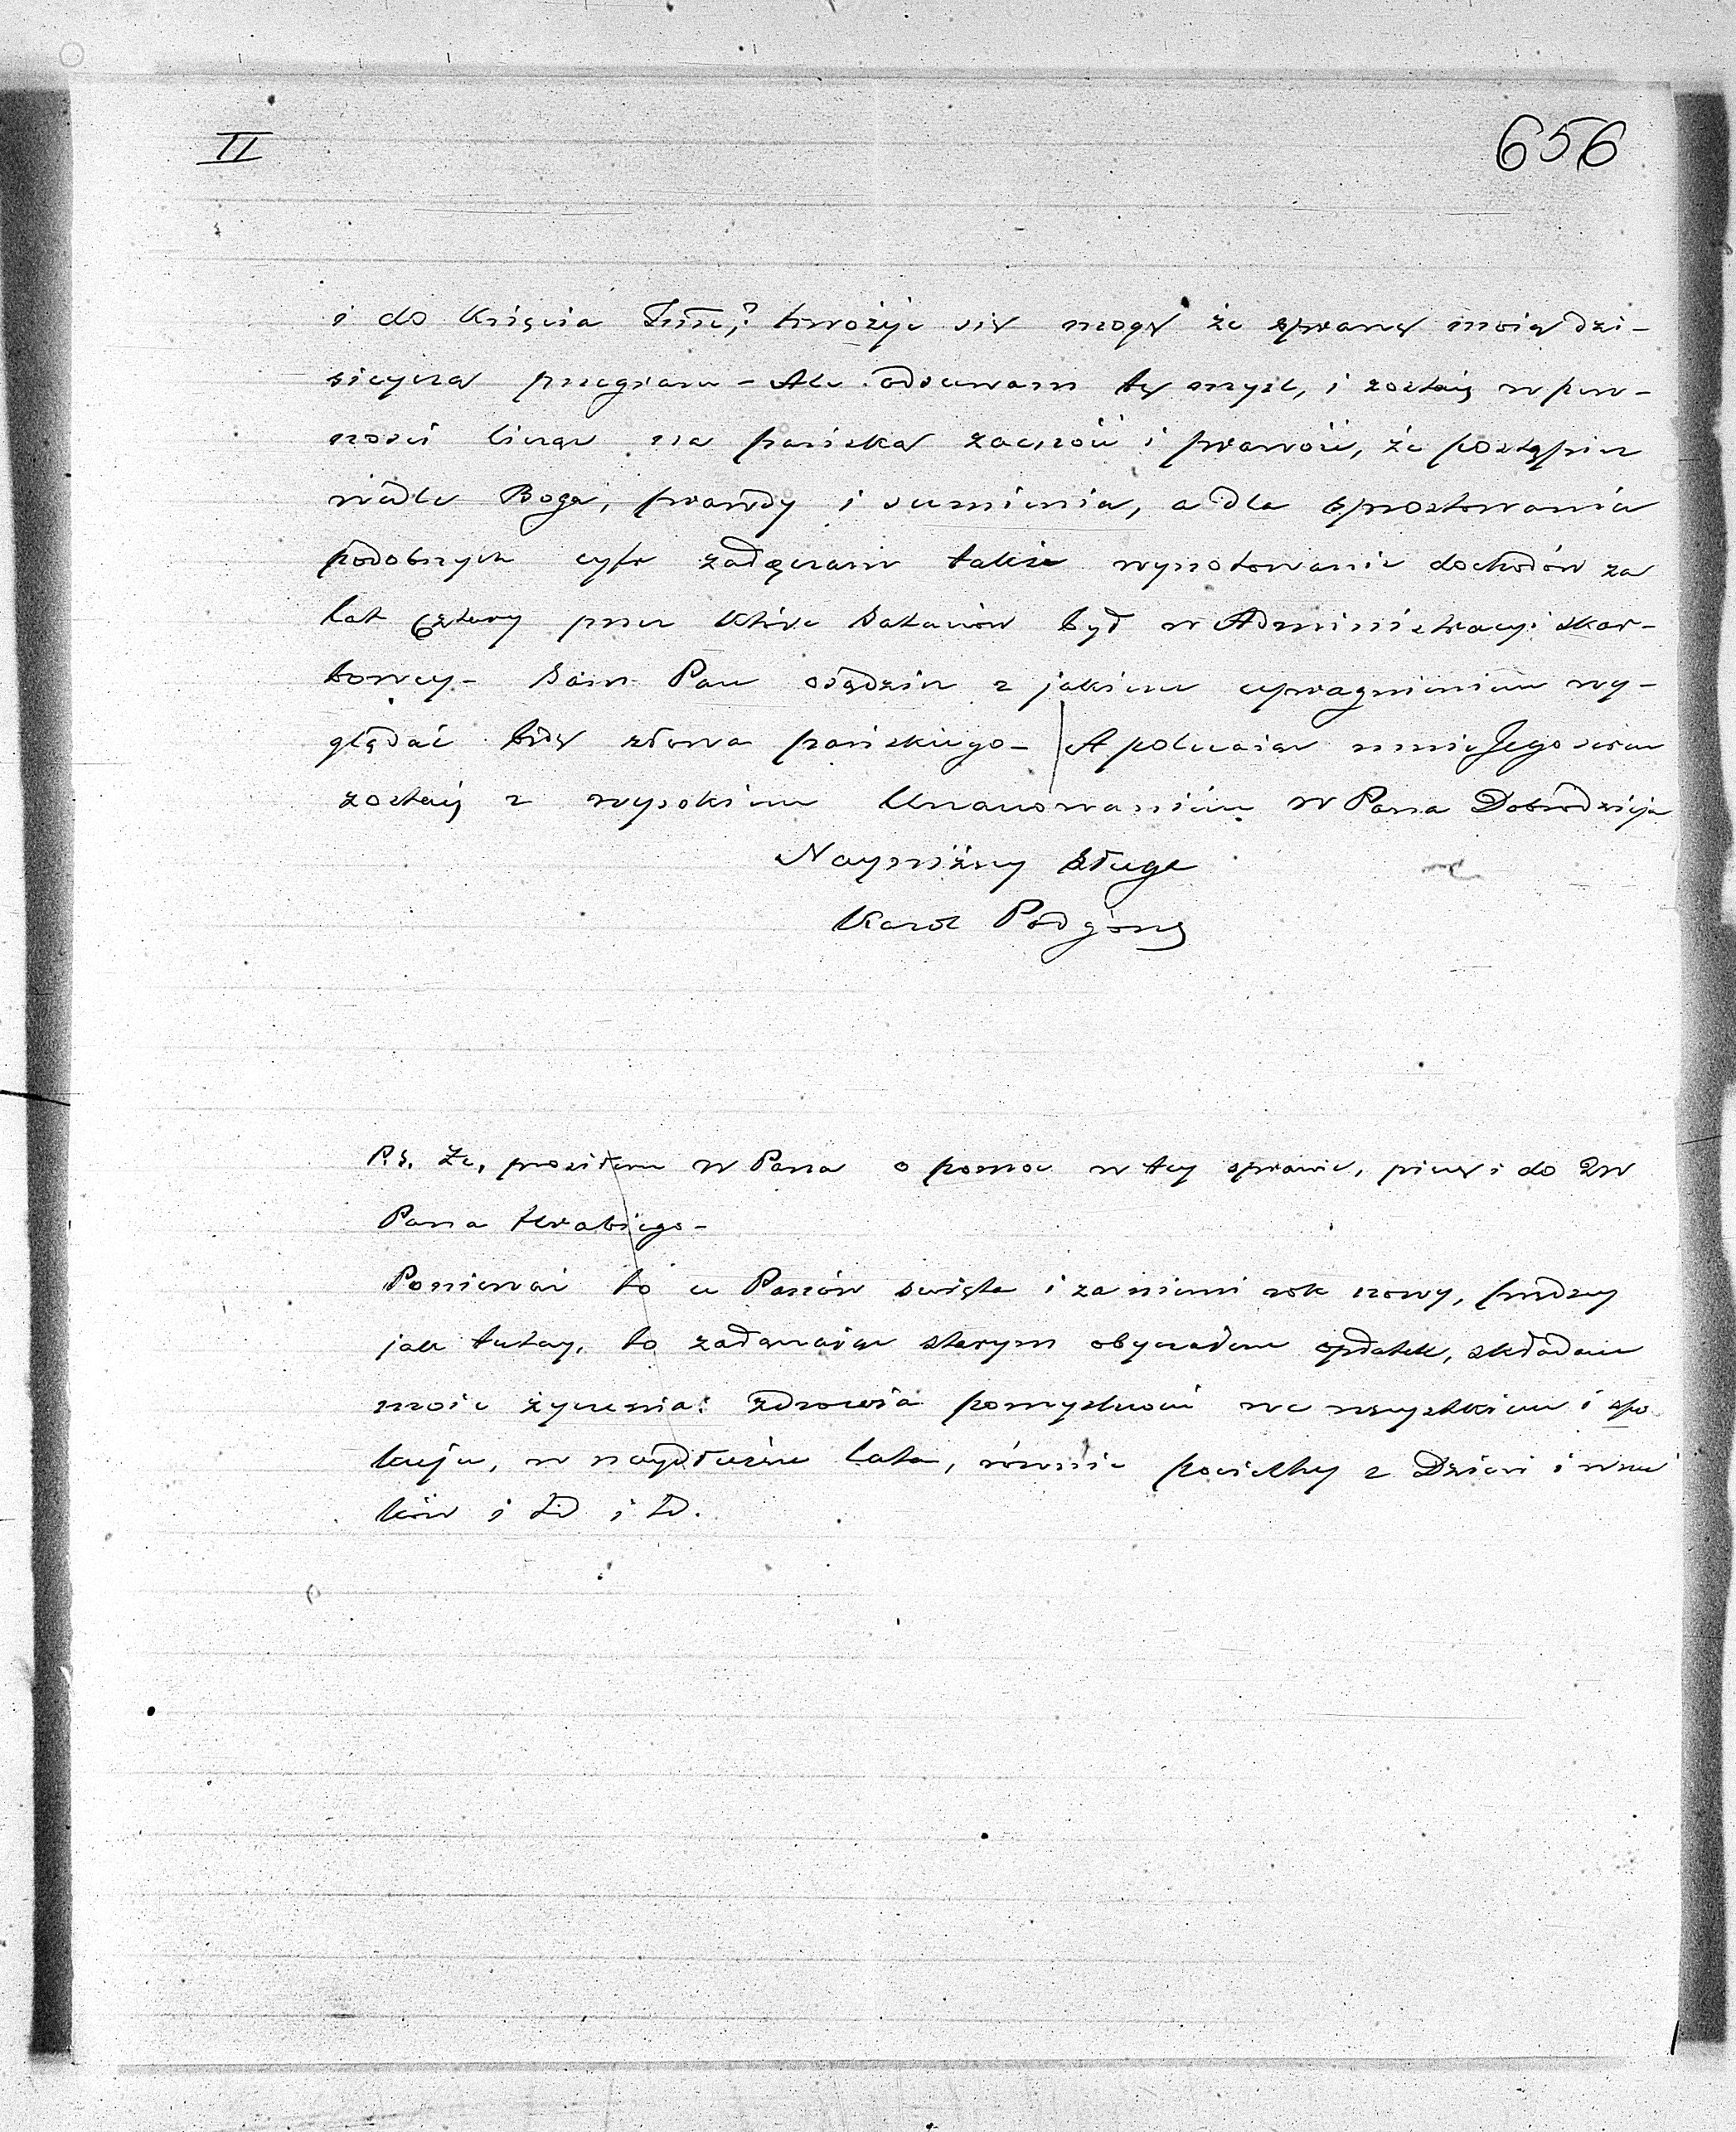 II 656
i do Księcia Jmci,? trwożyć się mogę że sprawę moię dzi-
sieyszą przegram – Ale odsuwam tę mysl, i zostaię w pew-
nosci licząc na pańską zacność i prawość, że postąpisz
wedle Boga, prawdy i sumienia, a dla sprostowania
podobnych cyfr załączam także wynotowanie dochodów za
lat cztery przez które Sataniów był w Administracyi skar-
bowey – Sam Pan osądzisz z jakiem upragnieniem wy-
glądać będę słowa pańskiego – A polecaiąc mnie Jego sercu
zostaię z wysokiem Uszanowaniem W Pana Dobrodzieja
Nayniższy Sługa
Karol Podgórs
P.S. Że, prosiłem W Pana o pomoc w tey sprawie, piszę i do JW
Pana Hrabiego –
Ponieważ to u Panów święta i za niemi rok nowy, prędzey
jak tutay, to załączaiąc starym obyczaiem opłatek, składam
moie życzenia: zdrowia pomyslności we wszystkiem i spo
kuju, w naydłuższe lata, równie pociechy z Dzieci i wnu
ków i td i td.